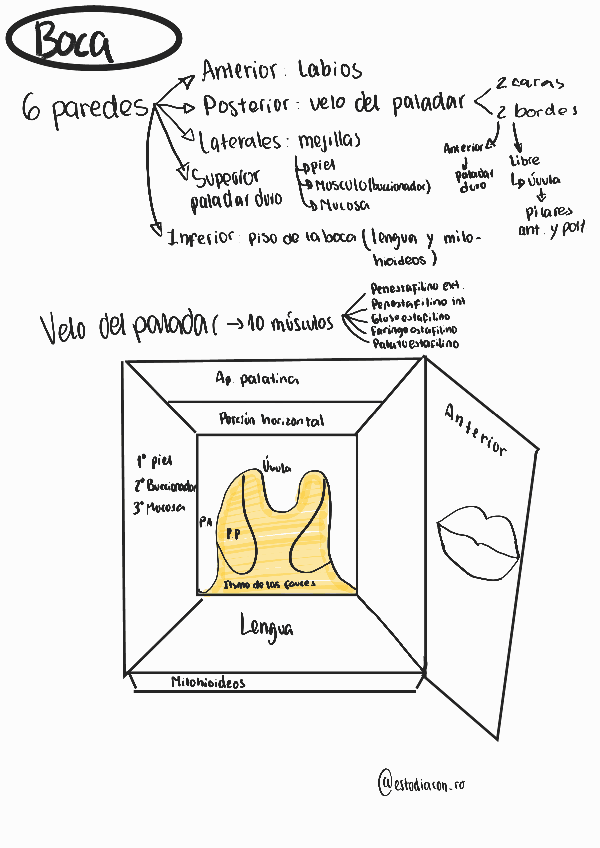 Boca
6 paredes
Anterior: Labios
Posterior: velo del paladar
2 caras
2 bordes
Anterior
paladar
duro
Libre
Úvula
pilares
ant. y post
Laterales: mejillas
piel
Musculo (buccionador)
Mucosa
Superior
paladar duro
Inferior: piso de la boca (lengua y milo-
hioideos)
Velo del paladar → 10 músculos
Periestafilino ext.
Periestafilino int
Glosoestafilino
Faringoestafilino
Palatoestafilino
Ap. palatina
Porción horizontal
Anterior
1° piel
2° Buccionador
3° Mucosa
Úvula
P.A
P.P
Itsmo de las fauces
Lengua
Milohioideos
@estudiacon_ro